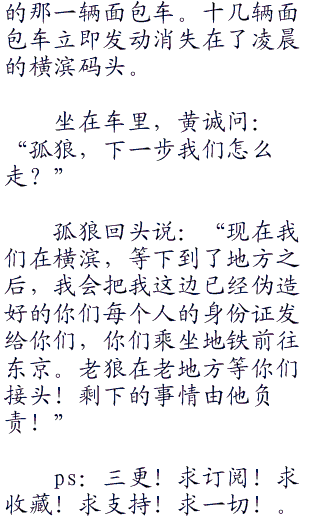 的那一辆面包车。十几辆面
包车立即发动消失在了凌晨
的横滨码头。
坐在车里，黄诚问：
“孤狼，下一步我们怎么
走？”
孤狼回头说：“现在我
们在横滨，等下到了地方之
后，我会把我这边已经伪造
好的你们每个人的身份证发
给你们，你们乘坐地铁前往
东京。老狼在老地方等你们
接头！剩下的事情由他负
责！”
ps：三更！求订阅！求
收藏！求支持！求一切！。